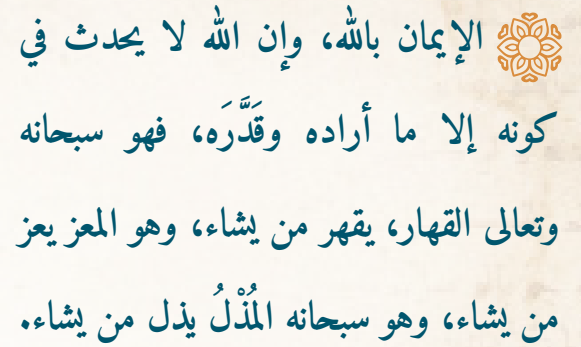 الإيمان بالله، وإن الله لا يحدث في
كونه إلا ما أراده وقَدَّرَه، فهو سبحانه
وتعالى القهار، يقهر من يشاء، وهو المعز يعز
من يشاء، وهو سبحانه المُذْلُ يذل من يشاء.